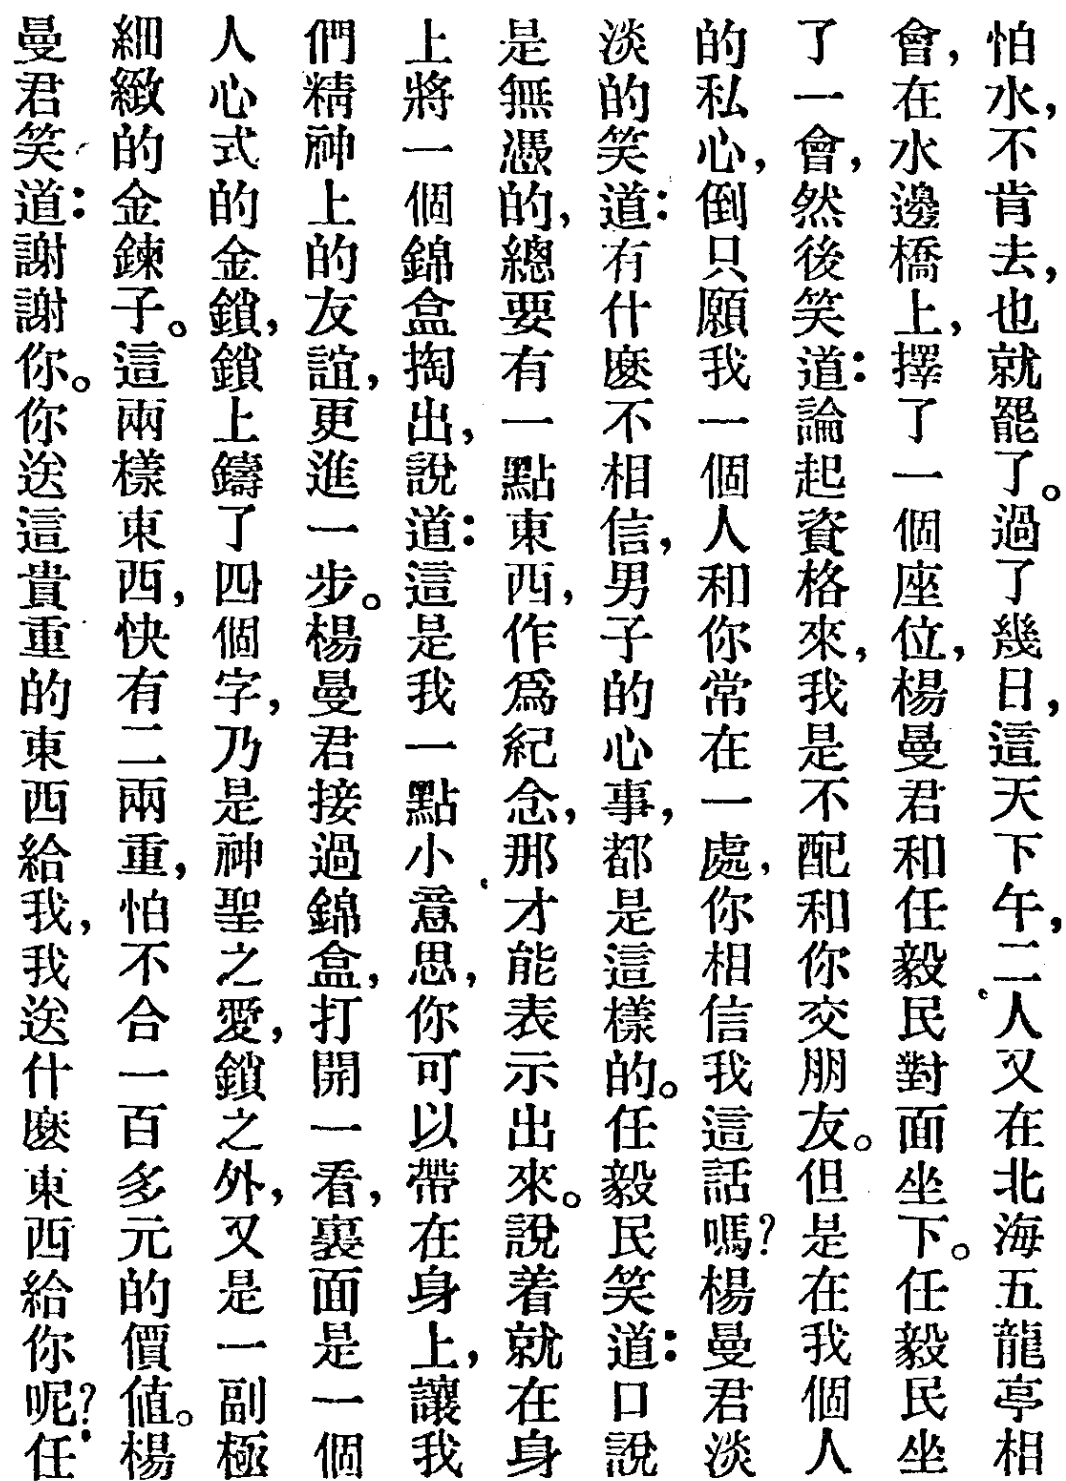 怕水，不肯去，也就罷了。過了幾日，這天下午，二人又在北海五龍亭相
會，在水邊橋上，擇了一個座位，楊曼君和任毅民對面坐下。任毅民坐
了一會，然後笑道：論起資格來，我是不配和你交朋友。但是在我個人
的私心，倒只願我一個人和你常在一處，你相信我這話嗎？楊曼君淡
淡的笑道：有什麽不相信，男子的心事，都是這樣的。任毅民笑道：口說
是無憑的，總要有一點東西，作爲紀念，那才能表示出來。說着就在身
上將一個錦盒掏出，說道：這是我一點小意思，你可以帶在身上，讓我
們精神上的友誼，更進一步。楊曼君接過錦盒，打開一看，裏面是一個
人心式的金鎖，鎖上鑄了四個字，乃是神聖之愛，鎖之外，又是一副極
細緻的金鍊子。這兩樣東西，快有二兩重，怕不合一百多元的價值。楊
曼君笑道：謝謝你。你送這貴重的東西給我，我送什麽東西給你呢？任